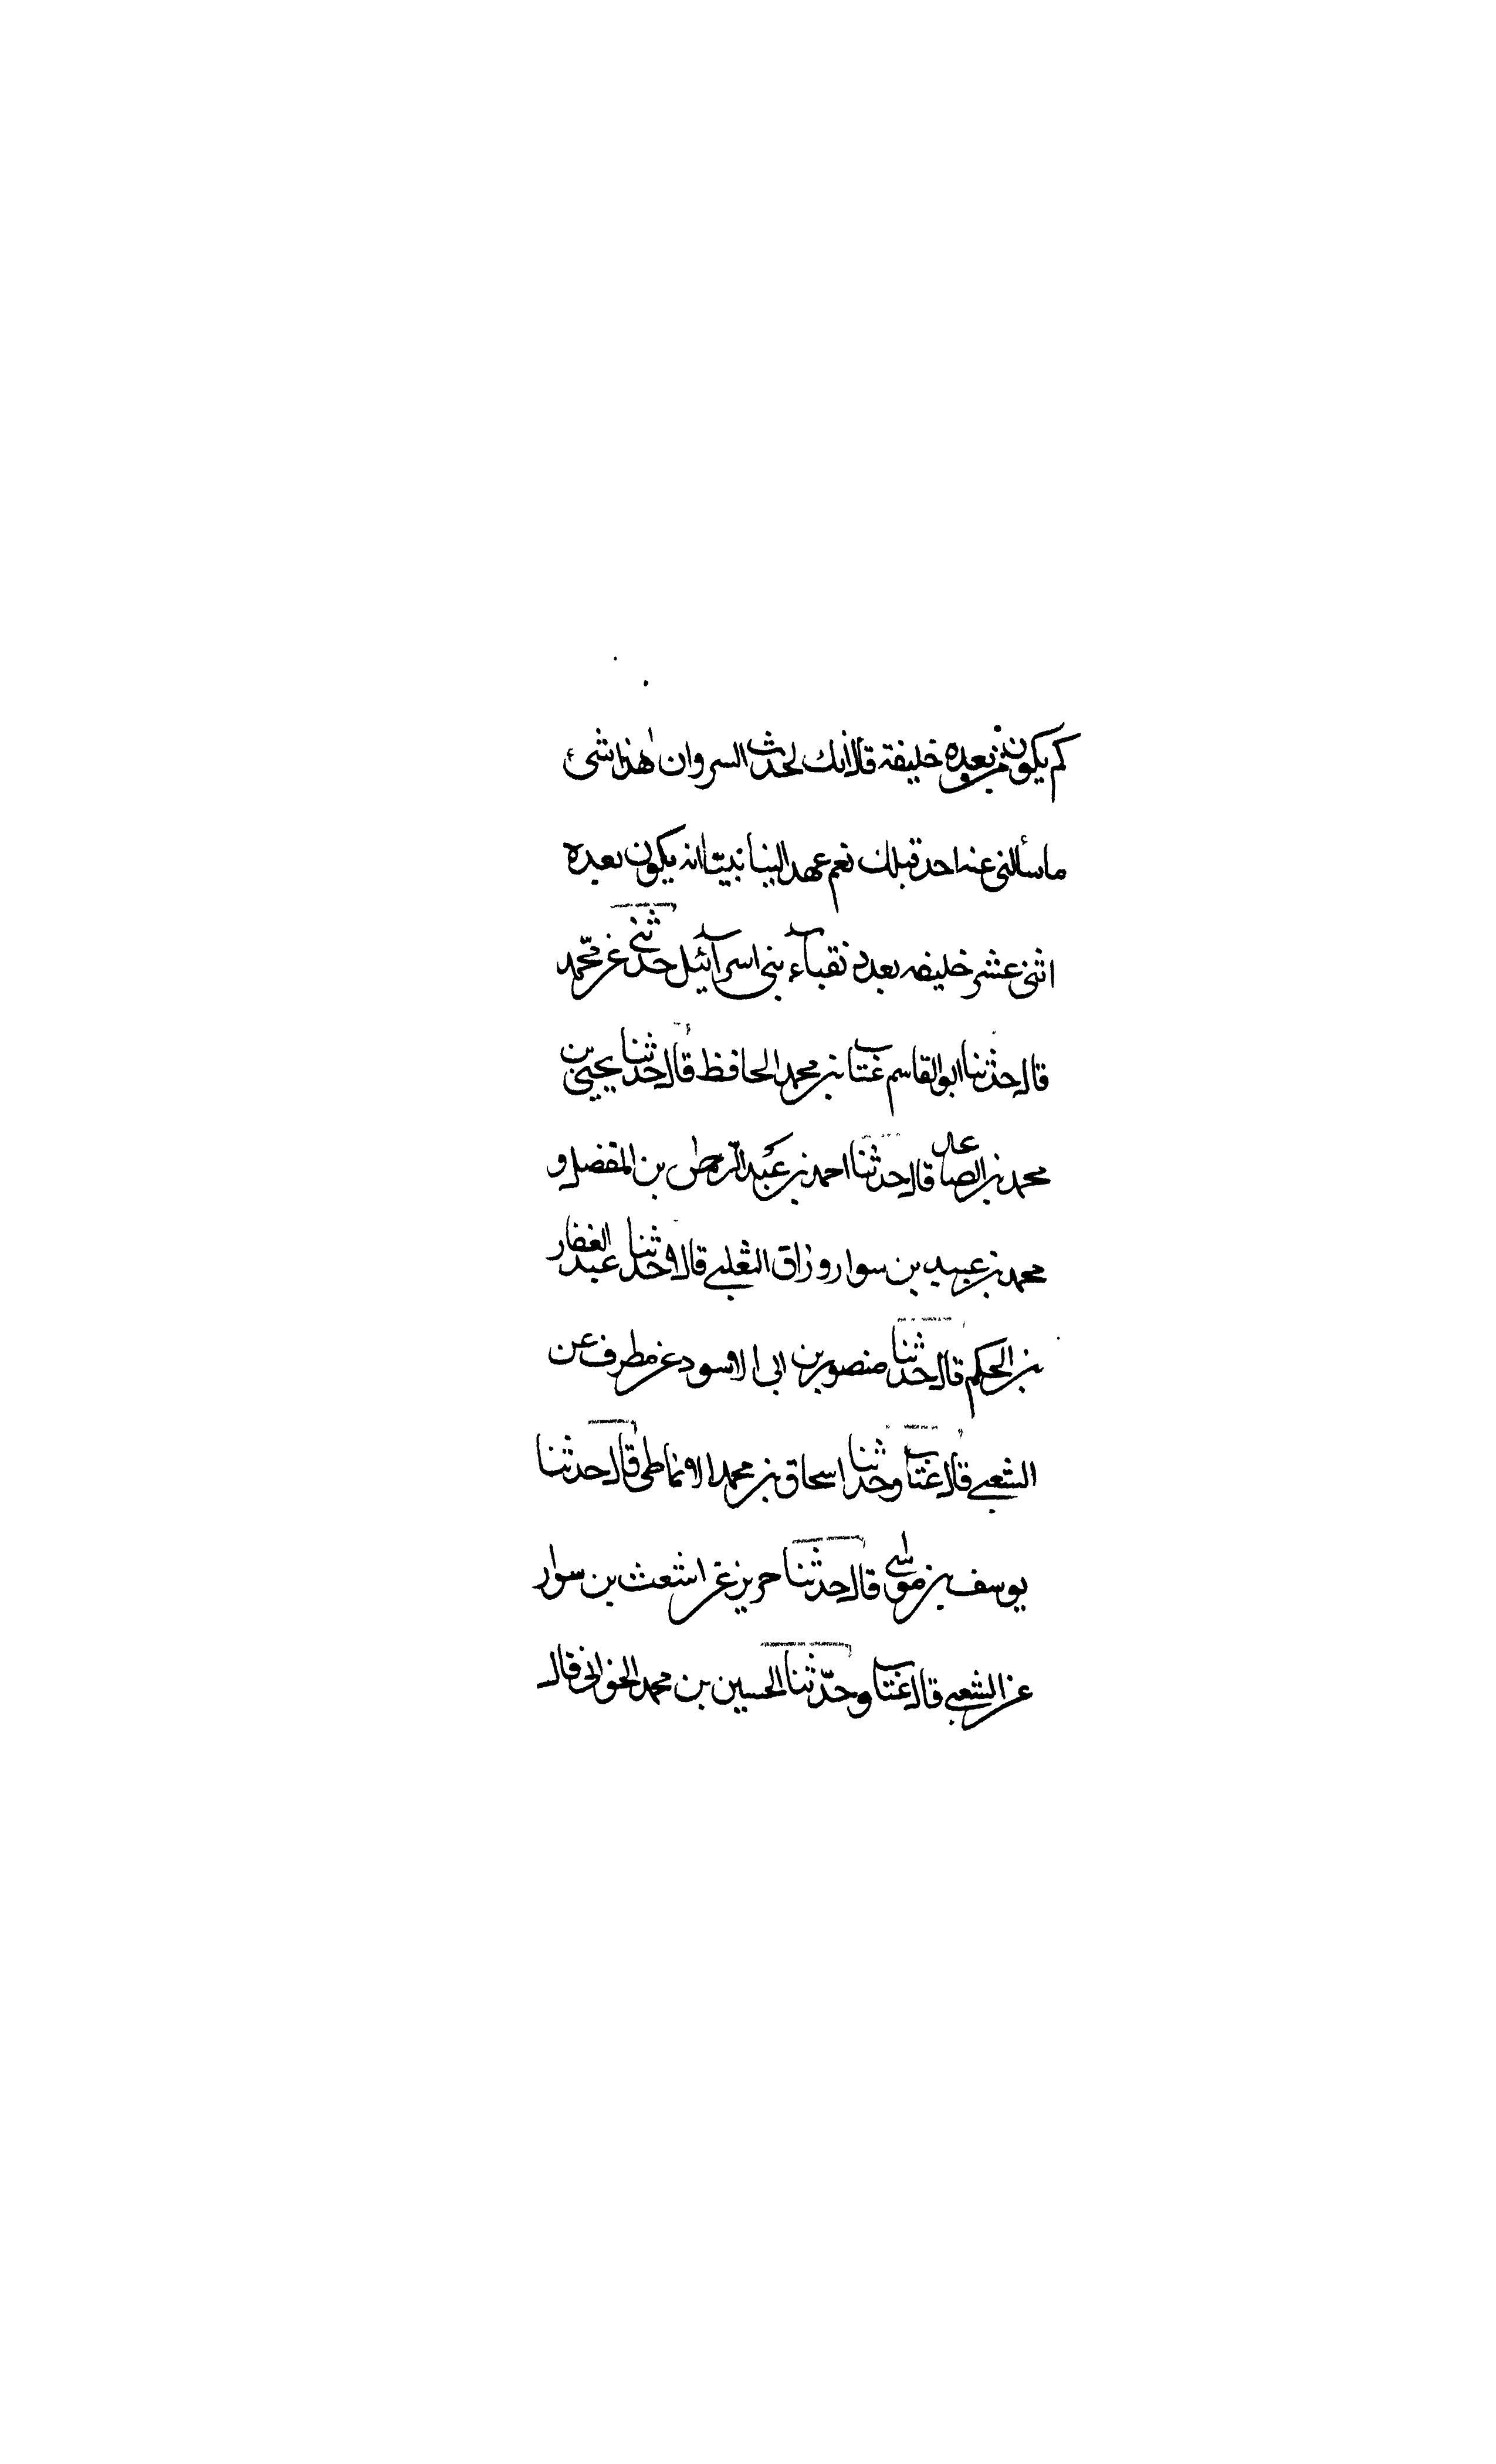 كم يكون من بعده خليفة قال انك لحدث السن وان هٰذا شئ
ما سألنى عنه احد قبلك نعم عهد الينا نبيّنا انه يكون بعده
اثنى عشر خليفه بعدد نقباء بنى اسرآئيل حدثنى غير محمّد
قال حدثنا ابو القاسم غتاب بن محمد الحافظ قال حدثنا يحيى بن
محمد بن الصاعد قال حدثنا احمد بن عبد الرّحمٰن بن المفضل و
محمد بن عبيد بن سوار وزاق الثعلبى قالا حدثنا عبد الغفار
بن الحكم قال حدثنا منصور بن ابى الاسود عن مطرف عن
الشعبى قال غتاب وحدثنا اسحاق بن محمد الانماطى قال حدثنا
يوسف بن موسٰى قال حدثنا حريز عن اشعث بن سوار
عن الشعبى قال غتاب وحدّثنا الحسين بن محمد الخوانى قال